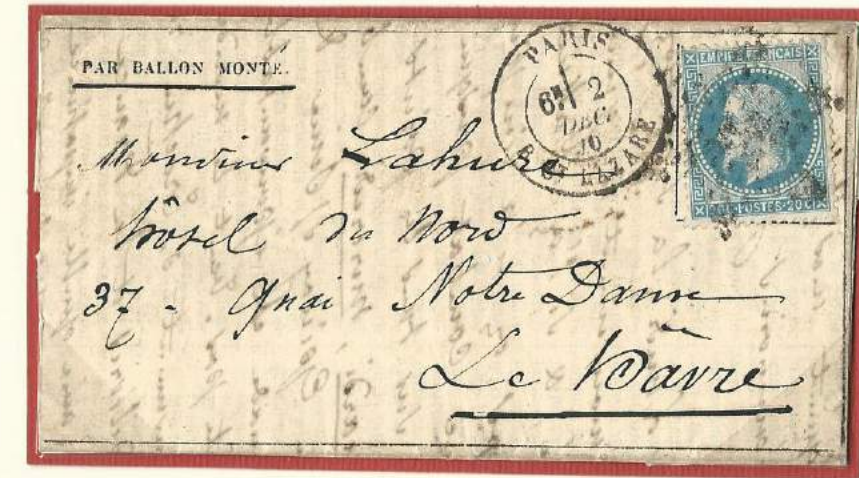 PAR BALLON MONTÉ.
PARIS
6E 2
DEC.
70
R. ST LAZARE
EMPIRE FRANCAIS
POSTES 20 C
Monsieur Lahure
hôtel du Nord
37 - Quai Notre Dame
Le Hâvre